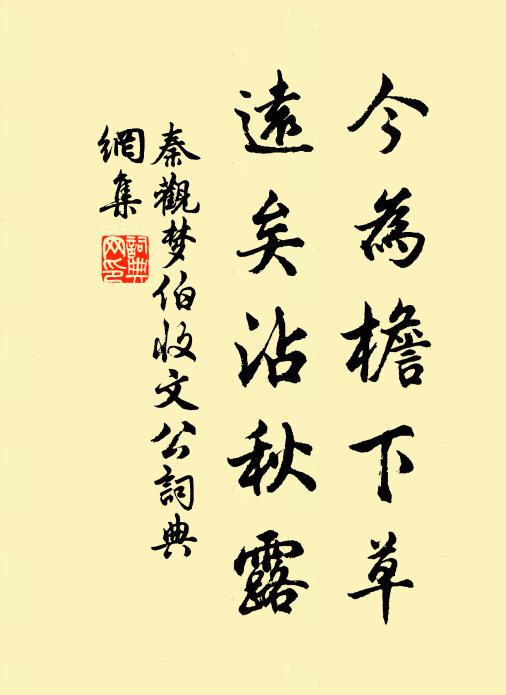 今為檐下草
遠矣沾秋露
秦觀梦伯收文公詞典
網集
詞典
网印